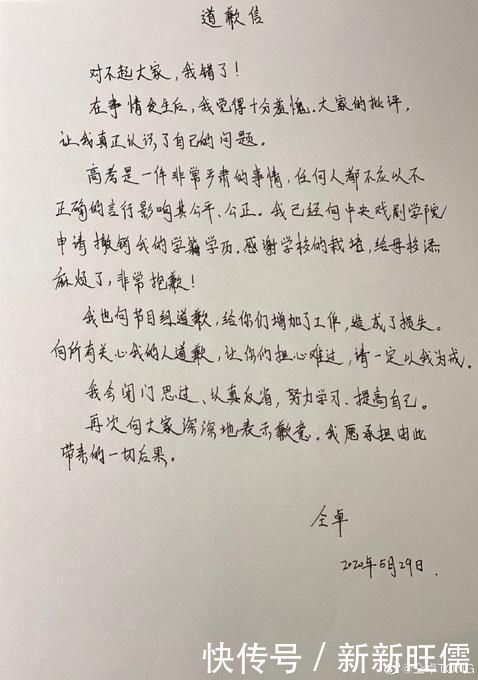 道歉信
对不起大家，我错了！
在事情发生后，我觉得十分羞愧。大家的批评，
让我真正认识了自己的问题。
高考是一件非常严肃的事情，任何人都不应以不
正确的言行影响其公平、公正。我已经向中央戏剧学院
申请撤销我的学籍学历，感谢学校的栽培，给母校添
麻烦了，非常抱歉！
我也向节目组道歉，给你们增加了工作，造成了损失。
向所有关心我的人道歉，让你们担心难过，请一定以我为戒。
我会闭门思过、认真反省，努力学习、提高自己。
再次向大家深深地表示歉意。我愿承担由此
带来的一切后果。
仝卓
2020年5月29日.
快传号/新新旺儒